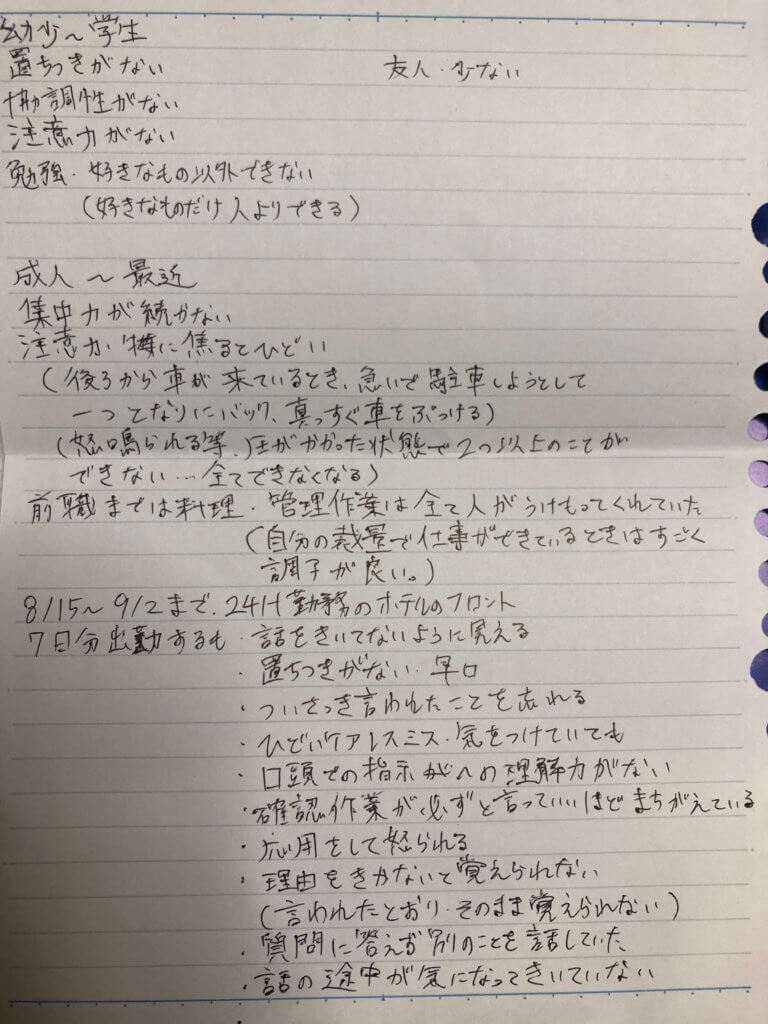 幼少～学生
置ちつきがない　友人・少ない
協調性がない
注意力がない
勉強・好きなもの以外できない
(好きなものだけ人よりできる)
成人～最近
集中力が続かない
注意力・特に焦るとひどい
(後ろから車が来ているとき、急いで駐車しようとして
一つとなりにバック、真っすぐ車をぶつける)
(怒鳴られる等、圧がかかった状態で2つ以上のことが
できない…全てできなくなる)
前職までは料理・管理作業は全て人がうけもってくれていた
(自分の裁量で仕事ができているときはすごく
調子が良い。)
8/15～9/2まで、24H勤務のホテルのフロント
7日分出勤するも・話をきいてないように見える
・置ちつきがない・早口
・ついさっき言われたことを忘れる
・ひどいケアレスミス・気をつけていても
・口頭での指示への理解力がない
・確認作業が必ずと言っていいほどまちがえている
・応用をして怒られる
・理由をきかないと覚えられない
(言われたとおり・そのまま覚えられない)
・質問に答えず別のことを話していた
・話の途中が気になってきいていない